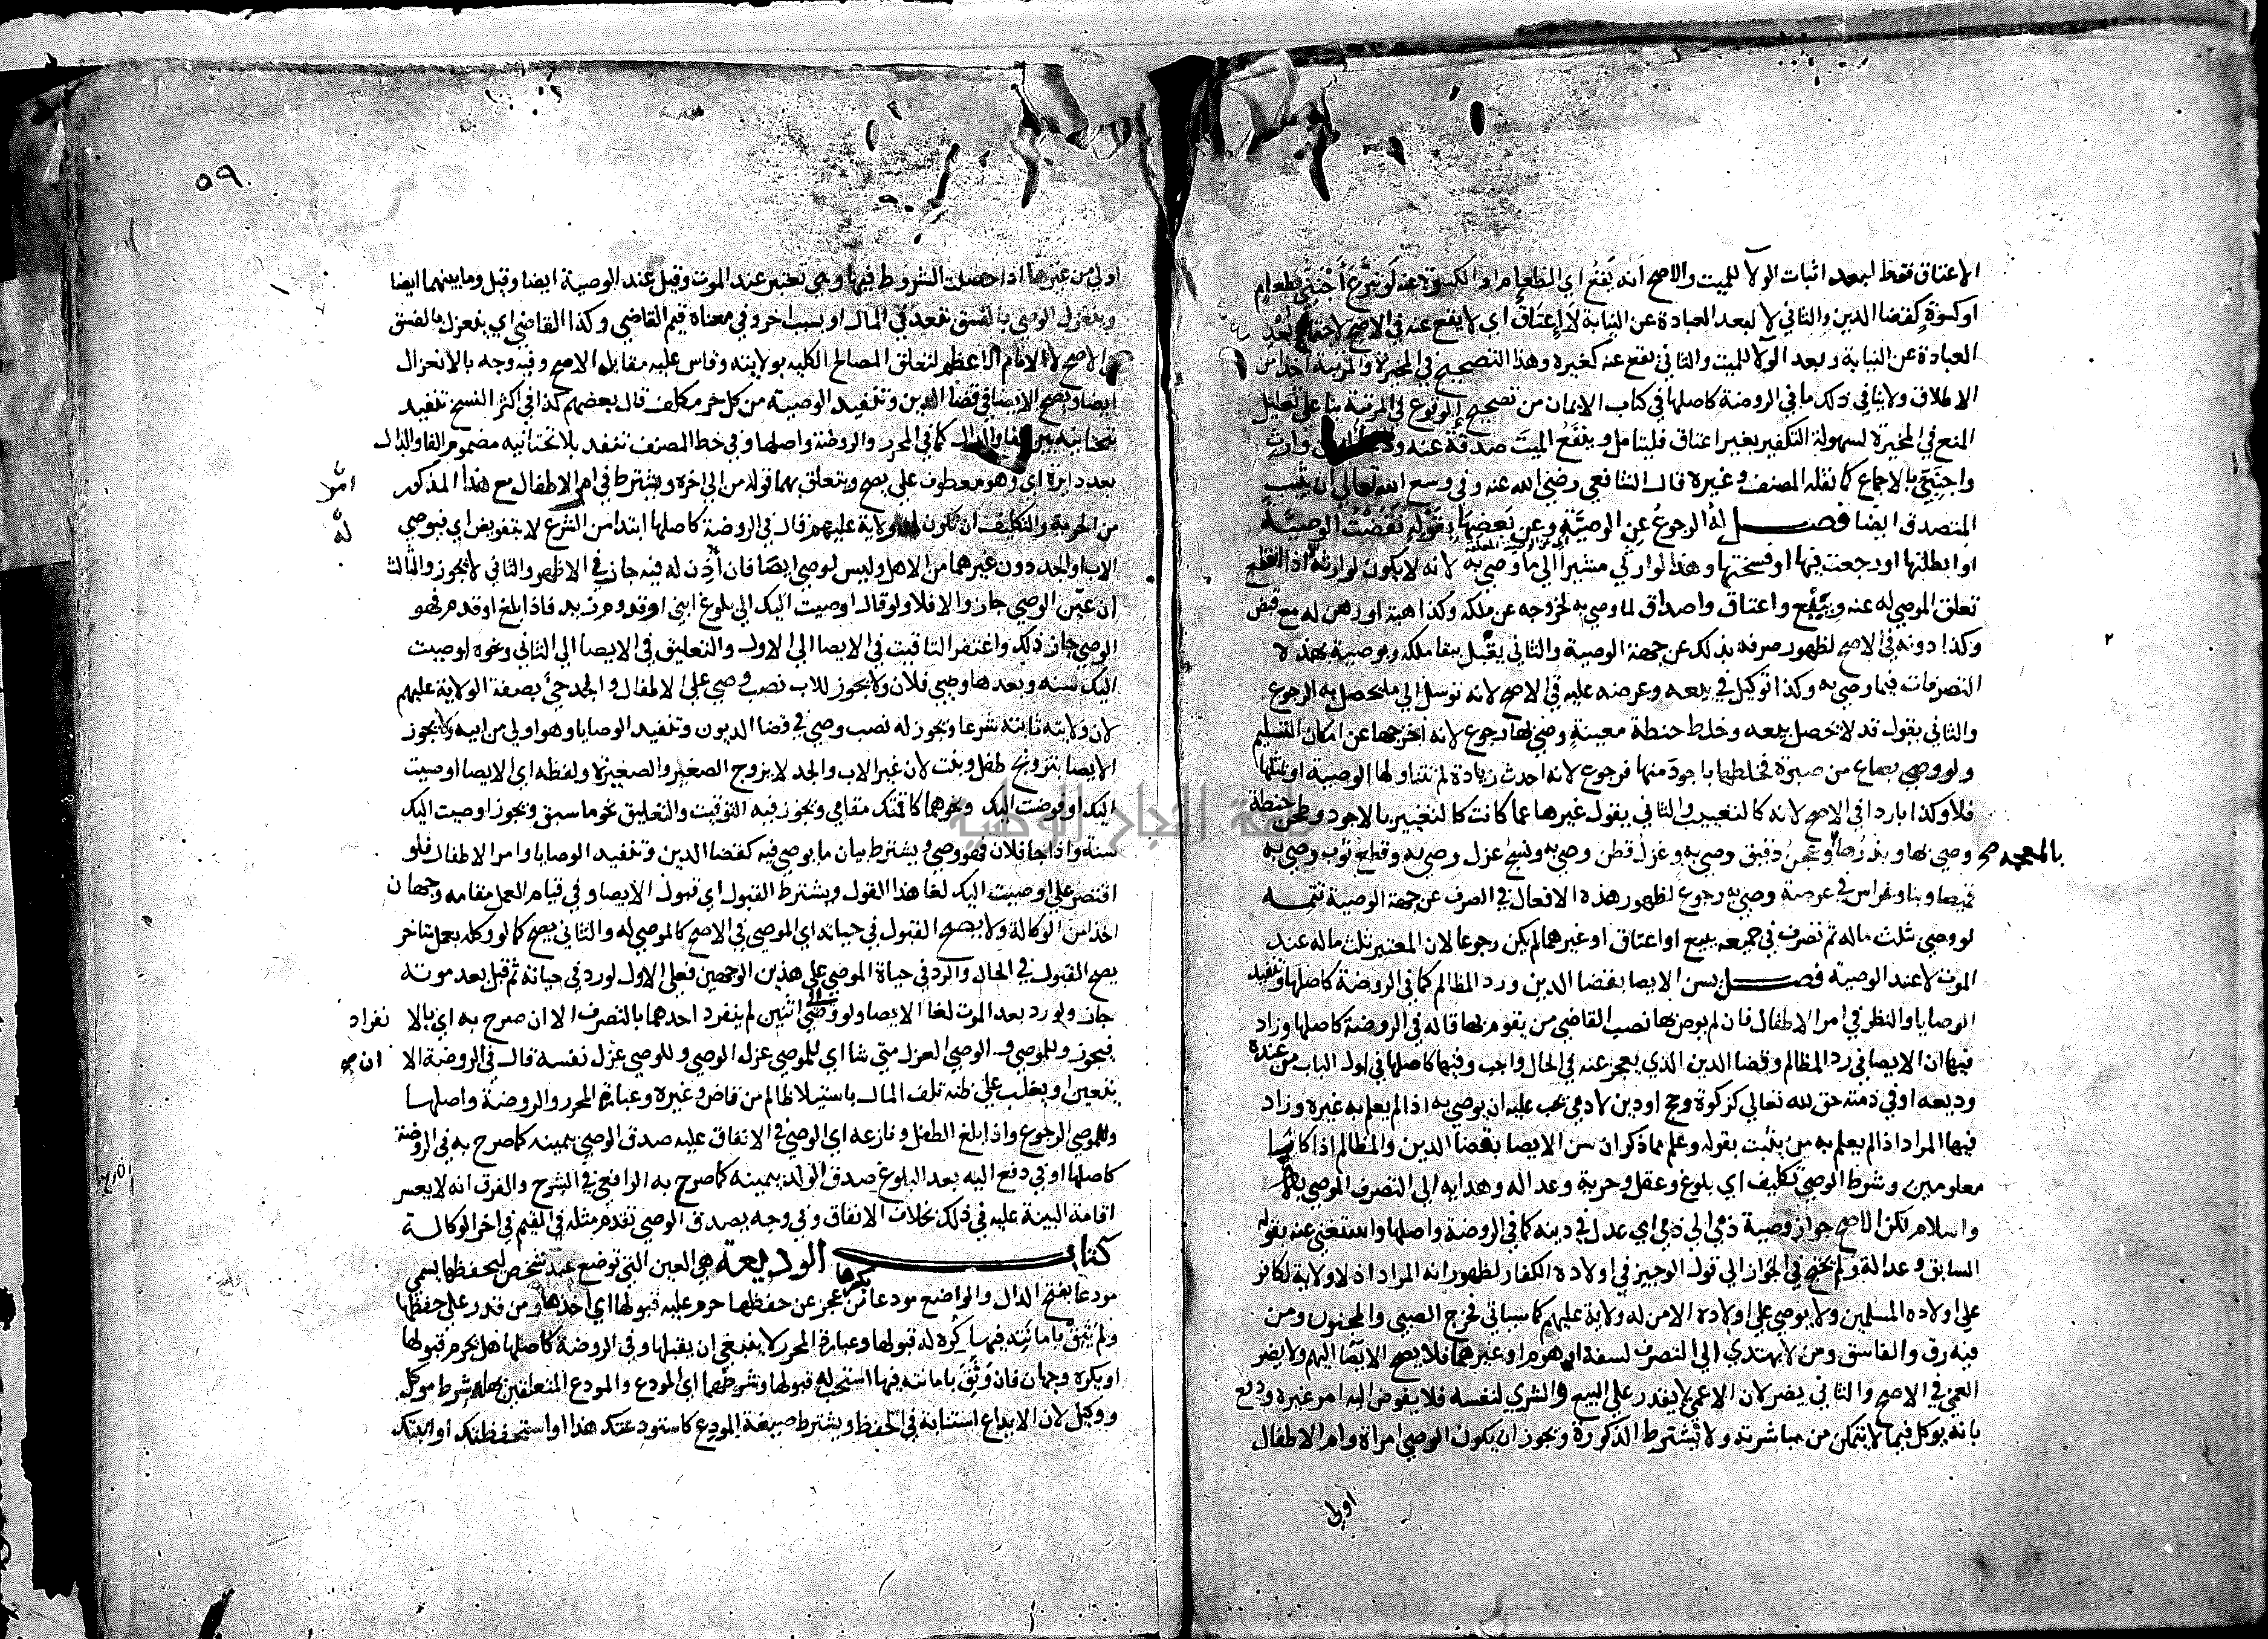 الاعتاق فقط لبعد اثبات الولا للميت والاصح انه يقع اي الطعام او الكسوة عنه لو تبرع اجنبي بطعام
او كسوة كقضا الدين والثاني لا لبعد العبادة عن النيابة لا اعتاق اي لا يقع عنه في الاصح لاجتماع بعد
العبادة عن النيابة وبعد الولا للميت والثاني يقع عنه كغيره وهذا التصحيح في المخيرة والمرتبة اخذا من
الاطلاق ولاينافي ذلك ما في الروضة كاصلها في كتاب الايمان من تصحيح الوقوع في المرتبة بنا على تعليل
المنع في المخيرة لسهولة التكفير بغير اعتاق فليتامل وينفع الميت صدقة عنه ودعا من وارث
واجنبي بالاجماع كما نقله المصنف وغيره قال الشافعي رضي الله عنه وفي وسع الله تعالى ان يثيب
المتصدق ايضا فصل له الرجوع عن الوصية وعن بعضها بقوله نقضت الوصية
او ابطلتها او رجعت فيها او فسختها وهذا لوارثي مشيرا الى ما وصي به لانه لا يكون لوارثه الا اذا انقطع
تعلق الموصي له عنه وببيع واعتاق واصداق لما وصي به لخروجه عن ملكه وكذا هبة او رهن له مع قبض
وكذا دونه في الاصح لظهور صرفه بذلك عن جهة الوصية والثاني يقبل ببقا ملكه وبوصية بهذه
التصرفات فيما وصي به وكذا توكيل في بيعه وعرضه عليه في الاصح لانه توسل الى ما يحصل به الرجوع
والثاني يقول قد لا يحصل بيعه وخلط حنطة معينة وصي بها رجوع لانه اخرجها عن امكان التسليم
ولو وصي بصاع من صبرة فخلطها باجود منها فرجوع لانه احدث زيادة لم تتناولها الوصية او بمثلها
فلا وكذا باردا في الاصح لانه كالتعييب والثاني يقول غيرها عما كانت كالتغيير بالاجود وطحن حنطة
وصي بها وبذرها وعجن دقيق وصي به وغزل قطن وصي به ونسج غزل وصي به وقطع ثوب وصي به
بالمعجمه صح
قميصا وبنا وغراس في عرصة وصي به رجوع لظهور هذه الافعال في الصرف عن جهة الوصية تتمه
لو وصي بثلث ماله ثم تصرف في جميعه ببيع او اعتاق او غيرهما لم يكن رجوعا لان المعتبر ثلث ماله عند
الموت لا عند الوصية فصل يسن الايصا بقضا الدين ورد المظالم كما في الروضة كاصلها وتنفيذ
الوصايا والنظر في امر الاطفال فان لم يوص بها نصب القاضي من يقوم بها قاله في الروضة كاصلها وزاد
فيها ان الايصا في رد المظالم وقضا الدين الذي يعجز عنه في الحال واجب وفيها كاصلها في اول الباب من عنده
وديعه او في ذمته حق لله تعالى كزكوة وحج او دين لادمي يجب عليه ان يوصي به اذا لم يعلم به غيره وزاد
فيها المراد اذا لم يعلم به من يثبت بقوله وعلم مما ذكر ان سن الايصا بقضا الدين والمظالم اذا كانا
معلومين وشرط الوصي تكليف اي بلوغ وعقل وحرية وعدالة وهداية الى التصرف الموصي به
واسلام لكن الاصح جواز وصية ذمي الى ذمي اي عدل في دينه كما في الروضة واصلها واستغني عنه بقوله
السابق وعدالة ولم يحتج في الجواز الى قول الوجيز في اولاده الكفار لظهور انه المراد اذ لا ولاية لكافر
على اولاده المسلمين ولا يوصي على اولاده الا من له ولاية عليهم كما سياتي فخرج الصبي والمجنون ومن
فيه رق والفاسق ومن لا يهتدي الى التصرف لسفه او هرم او غيرهما فلا يصح الايصا اليهم ولا يضر
العمي في الاصح والثاني يضر لان الاعمى لا يقدر على البيع والشري لنفسه فلا يفوض اليه امر غيره ودفع
بانه يوكل فيما لا يتمكن من مباشرته ولا تشترط الذكورة ويجوز ان يكون الوصي امراة وام الاطفال
اولى
٥٩
اولى من غيرها اذا حصلت الشروط فيها وهي تعتبر عند الموت وقيل عند الوصية ايضا وقيل وما بينهما ايضا
وينعزل الوصي بالفسق بتعد في المال او بسبب اخر وفي معناه قيم القاضي وكذا القاضي اي ينعزل بالفسق
في الاصح لا الامام الاعظم لتعلق المصالح الكليه بولايته وقاس عليه مقابل الاصح وفيه وجه بالانعزال
ايضا ويصح الايصا في قضا الدين وتنفيذ الوصية من كل حر مكلف قال بعضهم كذا في اكثر النسخ تنفيذ
بتحتانية بين الفا والذال كما في المحرر والروضة واصلها وفي خط المصنف تنفذ بلا تحتانيه مضموم الفا والذال
بعد دايرة اي وهو معطوف على يصح ويتعلق بهما قوله من الى اخره ويشترط في امر الاطفال مع هذا المذكور
من الحرية والتكليف ان تكون له ولاية عليهم قال في الروضة كاصلها ابتدا من الشرع لا بتفويض اي فيوصي
الاب والجد دون غيرهما من الاهل وليس لوصي ايصا فان اذن له فيه جاز في الاظهر والثاني لا يجوز والثالث
ان عين الوصي جاز والا فلا ولو قال اوصيت اليك الى بلوغ ابني او قدوم زيد فاذا بلغ او قدم فهو
الوصي جاز ذلك واغتفر التاقيت في الايصا الى الاول والتعليق في الايصا الى الثاني ونحوه اوصيت
اليك سنه وبعدها وصيي فلان ولا يجوز للاب نصب وصي على الاطفال والجد حي بصفة الولاية عليهم
لان ولايته ثابتة شرعا ويجوز له نصب وصي في قضا الديون وتنفيذ الوصايا وهو اولى من ابيه ولا يجوز
الايصا بتزويج طفل وبنت لان غير الاب والجد لا يزوج الصغير والصغيرة ولفظه اي الايصا اوصيت
اليك او فوضت اليك ونحوهما كاقمتك مقامي ويجوز فيه التوقيت والتعليق نحو ما سبق ويجوز اوصيت اليك
سنة واذا جا فلان فهو وصي ويشترط بيان ما يوصي فيه كقضا الدين وتنفيذ الوصايا وامر الاطفال فلو
اقتصر على اوصيت اليك لغا هذا القول ويشترط القبول اي قبول الايصا وفي قيام العمل مقامه وجهان
اخذا من الوكالة ولا يصح القبول في حياته اي الموصي في الاصح كالموصي له والثاني يصح كما لو وكله بعمل يتاخر
يصح القبول في الحال والرد في حياة الموصي على هذين الوجهين فعلى الاول لو رد في حياته ثم قبل بعد موته
جاز ولو رد بعد الموت لغا الايصا ولو وصى الى اثنين لم ينفرد احدهما بالتصرف الا ان صرح به اي بالا نفراد
فيجوز وللموصي والوصي العزل متى شا اي للموصي عزله الوصي وللوصي عزل نفسه قال في الروضة الا ان
يتعين او يغلب على ظنه تلف المال باستيلا ظالم من قاض وغيره وعبارة المحرر والروضة واصلها
وللموصي الرجوع واذا بلغ الطفل ونازعه اي الوصي في الانفاق عليه صدق الوصي بيمينه كما صرح به في الروضة
كاصلها او في دفع اليه بعد البلوغ صدق الولد بيمينه كما صرح به الرافعي في الشرح والفرق انه لا يعسر
اقامة البينة عليه في ذلك بخلاف الانفاق وفي وجه يصدق الوصي تقدم مثله في القيم في اخر الوكالة
كتاب الوديعة هي العين التي توضع عند شخص ليحفظها يسمي
مودعا بفتح الدال والواضع مودعا بكسرها من عجز عن حفظها حرم عليه قبولها اي اخذها ومن قدر على حفظها
ولم يثق بامانته فيها كره له قبولها وعبارة المحرر لا ينبغي ان يقبلها وفي الروضة كاصلها هل يحرم قبولها
او يكره وجهان فان وثق بامانته فيها استحب له قبولها وشرطهما اي المودع والمودع المتعلقين بها شرط موكل
ووكيل لان الايداع استنابة في الحفظ ويشترط صيغة المودع كاستودعتك هذا او استحفظتك او انبتك